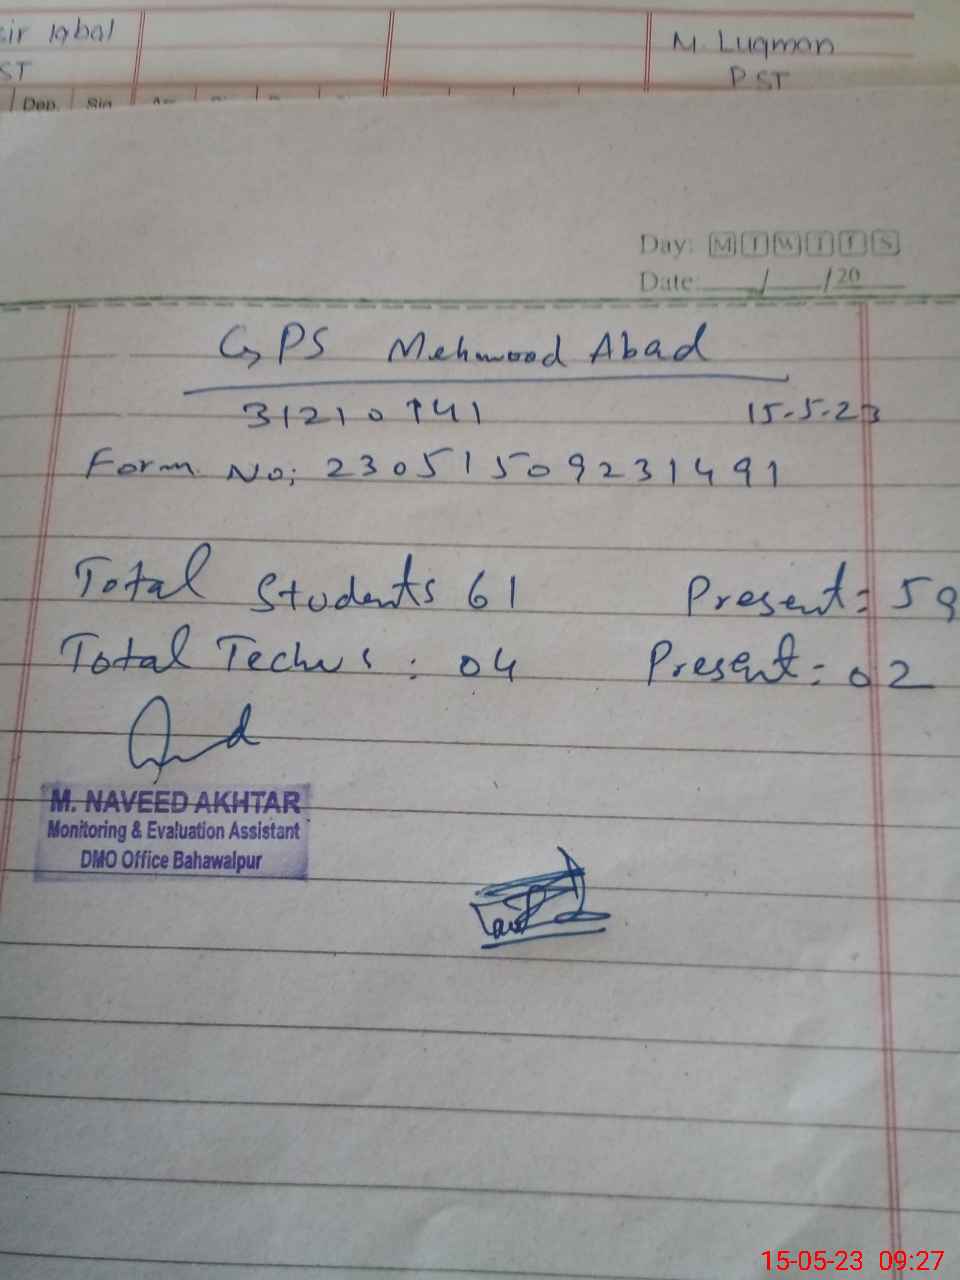 sir Iqbal
M. Luqman
ST
PST
Dep. Sig
Day: M T W T F S
Date ___/___/20___
GPS Mehmood Abad
31210741 15-5-23
Form No; 23051509231491
Total Students 61 Present: 59
Total Techrs: 04 Present: 02
M. NAVEED AKHTAR
Monitoring & Evaluation Assistant
DMO Office Bahawalpur
15-05-23 09:27